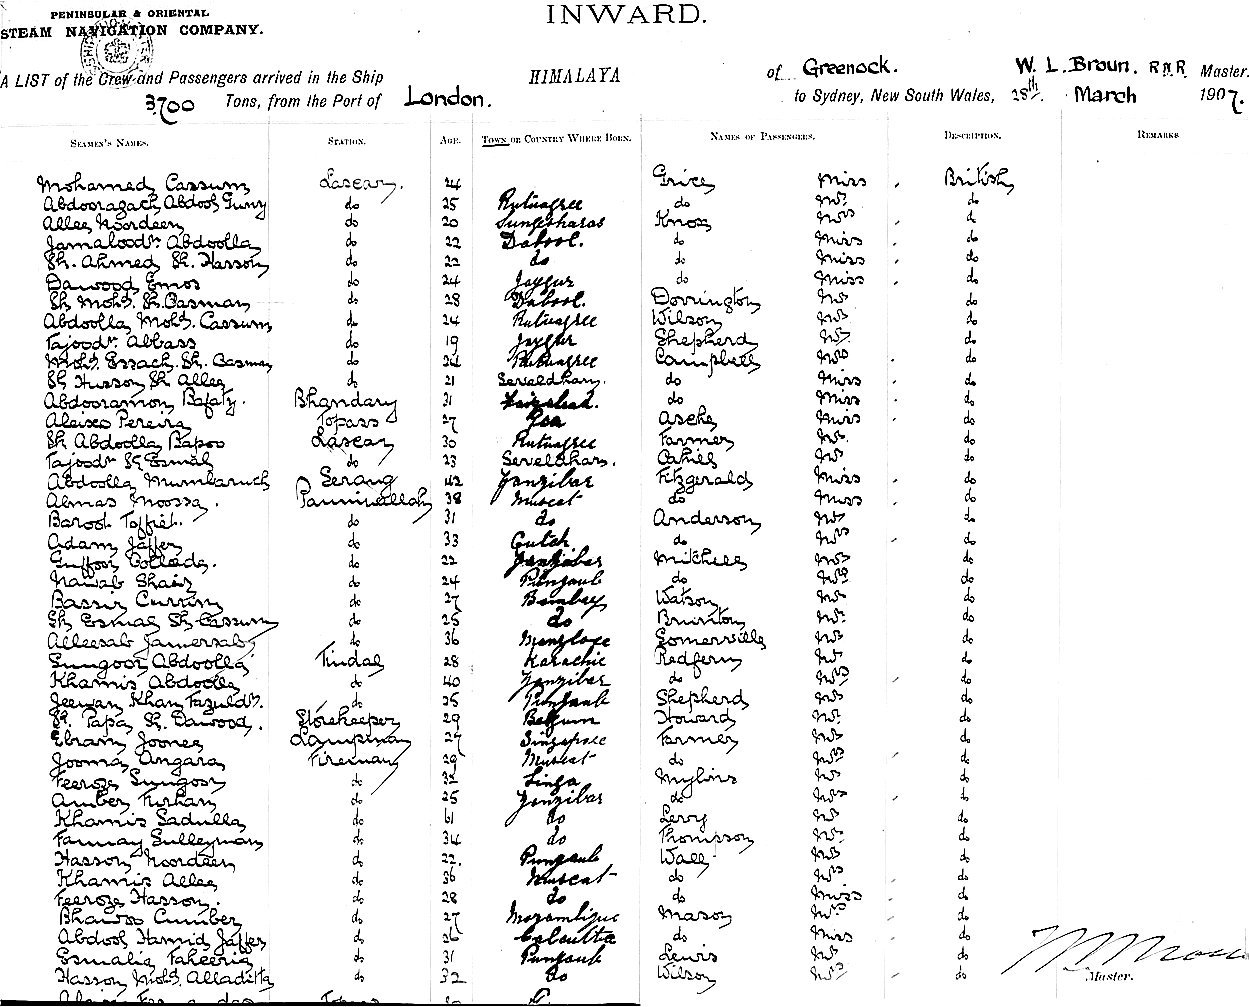 INWARD.
PENINSULAR & ORIENTAL
STEAM NAVIGATION COMPANY.
A LIST of the Crew and Passengers arrived in the Ship HIMALAYA of Greenock. W. L. Broun. R.N.R. Master.
3700 Tons, from the Port of London. to Sydney, New South Wales, 28th March 1907.
SEAMEN'S NAMES. STATION. AGE. TOWN OR COUNTRY WHERE BORN. NAMES OF PASSENGERS. DESCRIPTION. REMARKS
Mohamed Cassum Lascar. 24 Grice Miss British
Abdooragack Abdool Guny do 25 Rutnagree do Mr. do
Allee Noordeen do 20 Knox Mrs d
Jamaloodn. Abdoolla do 22 Dabool. do Miss do
Sk. Ahmed Sk. Hasson do 22 do do Miss do
Dawood Emos do 24 Jaygur do Miss do
Sk Mohd. Sk. Oasman do 28 Dabool. Dorrington Mr do
Abdoolla Mohd. Cassum do 24 Rutnagree Wilson Mr do
Tajoodn. Abbass do 19 Jaygur Shepherd Mr. do
Mohd. Essack. Sk. Oasman do Rutnagree Campbell Mrs do
Sk Husson Sk Allee do 21 do Miss do
Abdooramon Bafaty. Bhandary 31 do Miss do
Aleixo Pereira Topass 27 Goa Asche Miss do
Sk Abdoolla Bapoo Lascar 30 Rutnagree Farmer Mr. do
Tajoodn Sk Esmal do 23 Cahill Mr do
Abdoolla Mumbaruck Serang 42 Zanzibar Fitzgerald Miss do
Almas Moossa. Panniwallah 38 Muscat do Miss do
Barook Toffiel. do 31 do Anderson Mr do
Adam Jaffer do 33 Cutch do Mrs do
Guffoor do 22 Zanzibar Mitchell Mr do
Nawab Shair do 24 Punjaub do Mrs do
Bassir Currim do 27 Bombay Watson Mr. do
Sk Esmal Sk Cassum do 25 do Brunton Mr. do
Alleesab Jamersab do 36 Manglore Somerville Mr do
Sungoor Abdoolla Tindal 28 Karachie Redfern Mr do
Khamis Abdoolla do 40 Zanzibar do Mrs do
Jeewan Khan Fazuldn. do 25 Punjaub Shepherd Mr do
Sk. Papa Sk. Dawood. Storekeeper 29 Belgum Howard Mr. do
Ebram Joonee Lampman 27 Singapore Farmer Mr do
Jooma Angara Fireman 29 Muscat do Mrs do
Feeroze Sungoor do 32 Linga Mylius Mr do
Amber Furhan do 25 Zanzibar do Mrs do
Khamis Sadulla do 61 do Levy Mr do
Farmay Sulleyman do 34 do Thompson Mr. do
Hasson Noordeen do 22. Punjaub Wall Mr do
Khamis Allee do 36 Muscat do Mrs do
Feeroze Hasson. do 28 do do Miss do
Bhawoo Cumber do 27 Mozambique Mason Mrs do
Abdool Hamid Jaffer do 26 Calcutta do Miss do
Esmalia Faheeria do 31 Punjaub Lewis Mr do
Hasson Mohd. Alladitta do 32 do Wilson Mr do
Master.